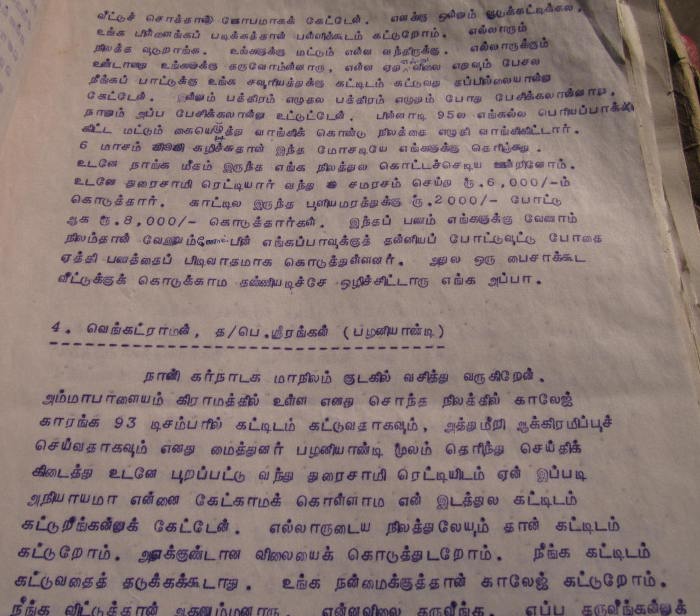 வீட்டுச் சொத்தான் கோபமாகக் கேட்டேன். எனக்கு ஒன்னும்
உங்க பிள்ளைங்கப் படிக்கத்தான் பள்ளிக்கூடம் கட்டுறோம். எல்லாரும்
நிலத்த வுடுறாங்க. உங்களுக்கு மட்டும் என்ன வந்திருக்கு. எல்லாருக்கும்
உண்டானத உங்களுக்கு தருவோம்னாரு, என்ன ஏது விலை எதவும் பேசல
நீங்கப் பாட்டுக்கு உங்க சவுரியத்துக்கு கட்டிடம் கட்டுவது தப்பில்லையான்னு
கேட்டேன். இன்னும் பத்திரம் எழுதல பத்திரம் எழுதும் போது பேசிக்கலான்னாரு.
நானும் அப்ப பேசிக்கலான்னு உட்டுட்டேன். பின்னாடி 95ல எங்கல்ல பெரியப்பாக்
கிட்ட மட்டும் கையெழுத்து வாங்கிக் கொண்டு நிலத்தை எழுதி வாங்கிகிட்டார்.
6 மாசம் கழிச்சுதான் இந்த மோசடியே எங்களுக்கு தெரிஞ்சது.
உடனே நாங்க மீதம் இருந்த எங்க நிலத்துல கொட்டச்செடிய ஊன்றினோம்.
உடனே துரைசாமி ரெட்டியார் வந்து சமரசம் செய்து ரூ.6,000/-ம்
கொடுத்தார். காட்டில இருந்த புளியமரத்துக்கு ரூ.2000/- போட்டு
ஆக ரூ.8,000/- கொடுத்தார்கள். இந்தப் பணம் எங்களுக்கு வேணாம்
நிலம்தான் வேணும்னோம் பின் எங்கப்பாவுக்குத் தண்ணியப் போட்டுவுட்டு போதை
ஏத்தி பணத்தைப் பிடிவாதமாக கொடுத்துள்ளனர். அதுல ஒரு பைசாக்கூட
வீட்டுக்குக் கொடுக்காம தண்ணியடிச்சே ஒழிச்சிட்டாரு எங்க அப்பா.
4. வெங்கட்ராமன், த/பெ.ஸ்ரீரங்கன் (பழனியாண்டி)
நான் கர்நாடக மாநிலம் குடகில் வசித்து வருகிறேன்.
அம்மாபாளையம் கிராமத்தில் உள்ள எனது சொந்த நிலத்தில் காலேஜ்
காரங்க 93 டிசம்பரில் கட்டிடம் கட்டுவதாகவும், அத்துமீறி ஆக்கிரமிப்புச்
செய்வதாகவும் எனது மைத்துனர் பழனியாண்டி மூலம் தெரிந்து செய்திக்
கிடைத்து உடனே புறப்பட்டு வந்து துரைசாமி ரெட்டியிடம் ஏன் இப்படி
அநியாயமா என்னை கேட்காமக் கொள்ளாம என் இடத்துல கட்டிடம்
கட்டுறீங்கன்னுக் கேட்டேன். எல்லாருடைய நிலத்துலேயும் தான் கட்டிடம்
கட்டுறோம். அதுக்குண்டான விலையைக் கொடுத்துடறோம். நீங்க கட்டிடம்
கட்டுவதைத் தடுக்கக்கூடாது. உங்க நன்மைக்குத்தான் காலேஜ் கட்டுறோம்.
நீங்க விட்டுத்தான் ஆகணும்னாரு. என்னவிலை தருவீங்க. எப்ப தருவீங்கன்னுக்